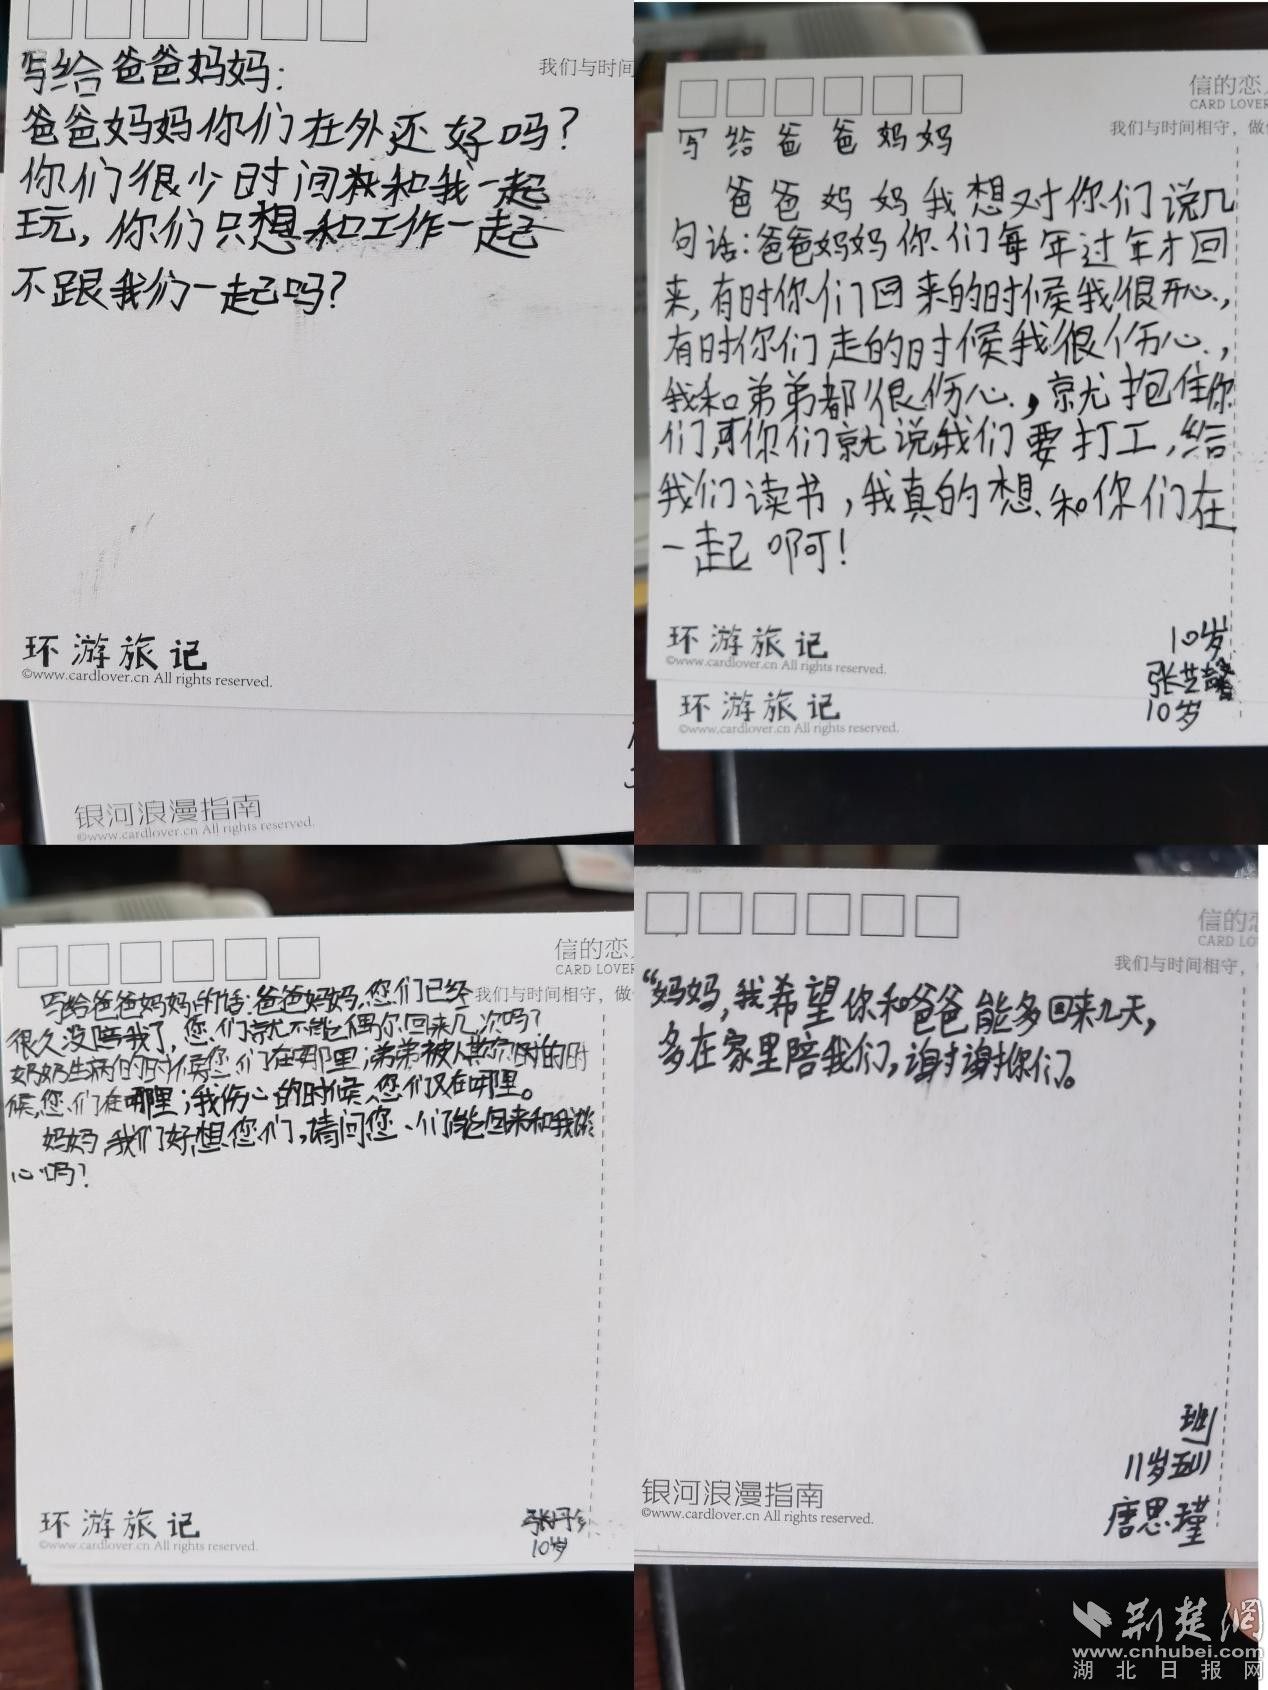 写给爸爸妈妈:
我们与时间
爸爸妈妈你们在外还好吗?
你们很少时间来和我一起
玩,你们只想和工作一起
不跟我们一起吗?
环游旅记
©www.cardlover.cn All rights reserved.
银河浪漫指南
©www.cardlover.cn All rights reserved.
信的恋
CARD LOVER
我们与时间相守,做
写给爸爸妈妈
爸爸妈妈我想对你们说几
句话:爸爸妈妈你们每年过年才回
来,有时你们回来的时候我很开心,
有时你们走的时候我很伤心,
我和弟弟都很伤心,就抱住你
们,可你们就说我们要打工,给
我们读书,我真的想和你们在
一起啊!
环游旅记
©www.cardlover.cn All rights reserved.
10岁
张芝馨
环游旅记
©www.cardlover.cn All rights reserved.
10岁
信的恋
CARD LOVER
我们与时间相守,做
写给爸爸妈妈的话:爸爸妈妈,您们已经
很久没陪我了,您们就不能偶尔回来几次吗?
奶奶生病的时候您们在哪里,弟弟被人欺负时的时
候,您们在哪里;我伤心的时候,您们又在哪里。
妈妈,我们好想您们,请问您们能回来和我谈
心吗?
环游旅记
©www.cardlover.cn All rights reserved.
张丹
10岁
信的恋
CARD LO
我们与时间相守,
“妈妈,我希望你和爸爸能多回来几天,
多在家里陪我们,谢谢你们。
班
11岁五(1)
唐思瑾
银河浪漫指南
©www.cardlover.cn All rights reserved.
荆楚网
www.cnhubei.com
湖北日报网